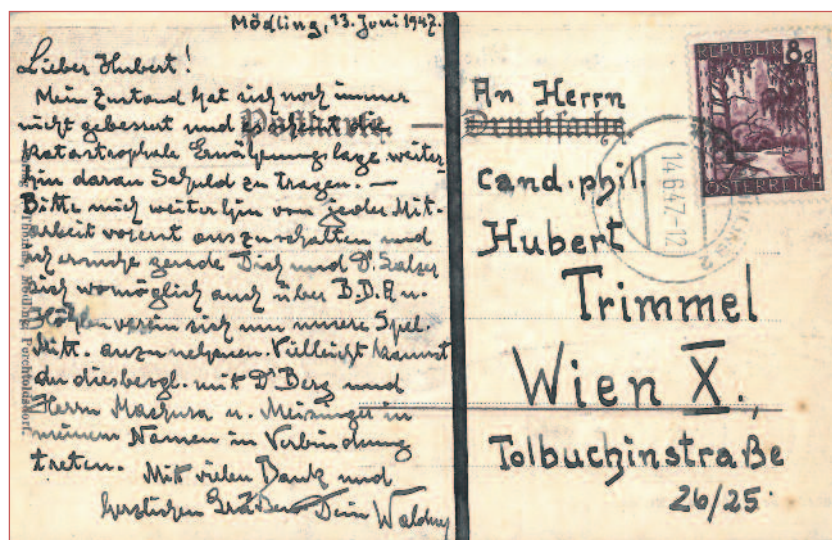 Mödling, 13. Juni 1947.
Lieber Hubert!
Mein Zustand hat sich noch immer
nicht gebessert und es scheint die
katastrophale Ernährungslage weiter-
hin daran Schuld zu tragen. —
Bitte mich weiterhin von jeder Mit-
arbeit vorerst auszuschalten und
ich ersuche gerade Dich und Dr. Salzer
sich womöglich auch über B.D.A u.
Höhlenverein sich um unsere Spel.
Mitt. anzunehmen. Vielleicht kannst
du diesbezgl. mit Dr Berg und
Herrn Machura u. Meisinger in
meinem Namen in Verbindung
treten. Mit vielen Dank und
herzlichen Grüßen Dein Waldner
Mödling, Perchtoldsdorf.
Drucksache
An Herrn
cand. phil.
Hubert
Trimmel
Wien X.,
Tolbuchinstraße
26/25.
REPUBLIK 8g
ÖSTERREICH
14.6.47-12